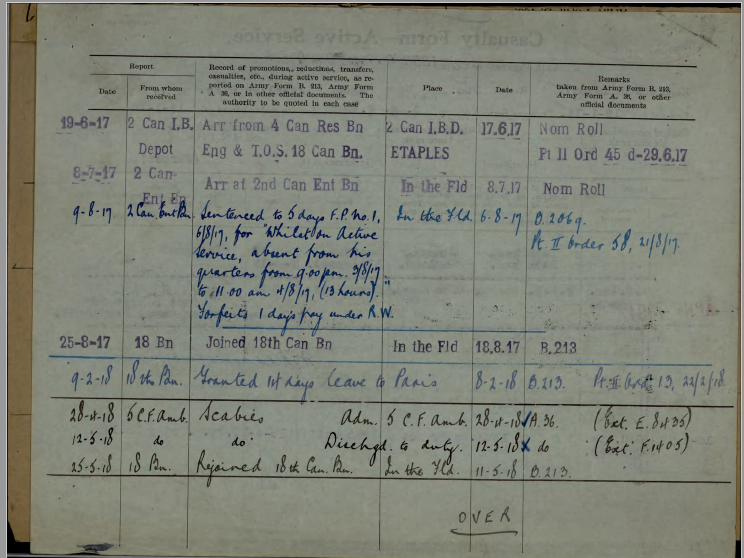 Casualty Form—Active Service.
Report
Record of promotions, reductions, transfers, casualties, etc., during active service, as reported on Army Form B. 213, Army Form A. 36, or in other official documents. The authority to be quoted in each case
Place
Date
Remarks
taken from Army Form B. 213, Army Form A. 36, or other official documents
Date
From whom received
19-6-17 2 Can I.B. Arr from 4 Can Res Bn 2 Can I.B.D. 17.6.17 Nom Roll
Depot Eng & T.O.S. 18 Can Bn. ETAPLES Pt II Ord 45 d-29.6.17
8-7-17 2 Can
Ent Bn Arr at 2nd Can Ent Bn In the Fld 8.7.17 Nom Roll
9-8-17 2 Can. Ent Bn. Sentenced to 5 days F.P. No. 1, In the Fld. 6-8-17 B.2069.
6/8/17, for "Whilst on Active Pt. II Order 58, 21/8/17.
Service, absent from his
quarters from 9.00 pm. 3/8/17
to 11.00 am 4/8/17, (13 hours)."
Forfeits 1 days pay under R.W.
25-8-17 18 Bn Joined 18th Can Bn In the Fld 18.8.17 B.213
9-2-18 18th Bn. Granted 14 days leave to Paris 8-2-18 B.213. Pt. II Ord 13, 22/2/18
28-4-18 5 C.F. Amb. Scabies Adm. 5 C.F. Amb. 28-4-18 A.36. (Ext. E.8435)
12-5-18 do do Dischgd. to duty. 12-5-18 do (Ext. F.1405)
25-5-18 18 Bn. Rejoined 18th Can. Bn. In the Fld. 11-5-18 B.213.
OVER